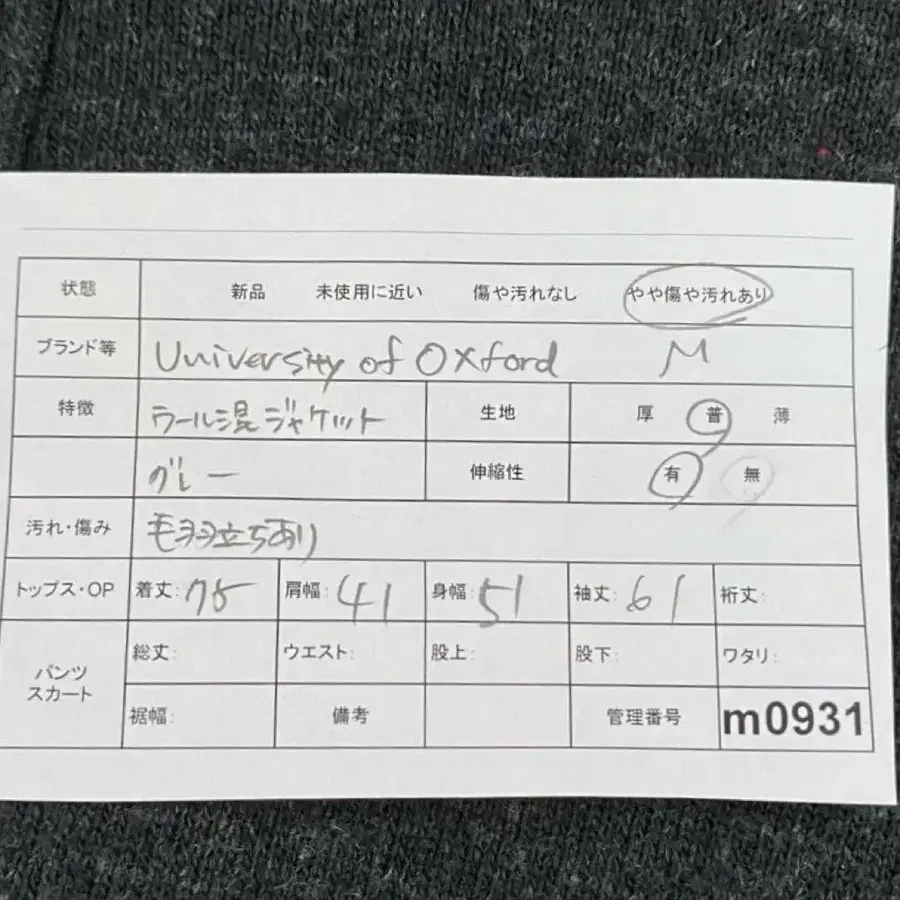 状態 新品 未使用に近い 傷や汚れなし やや傷や汚れあり
ブランド等 University of Oxford M
特徴 ウール混ジャケット 生地 厚 普 薄
グレー 伸縮性 有 無
汚れ・傷み 毛羽立ちあり
トップス・OP 着丈: 75 肩幅: 41 身幅: 51 袖丈: 61 裄丈:
パンツ
スカート
総丈: ウエスト: 股上: 股下: ワタリ:
裾幅: 備考 管理番号 m0931